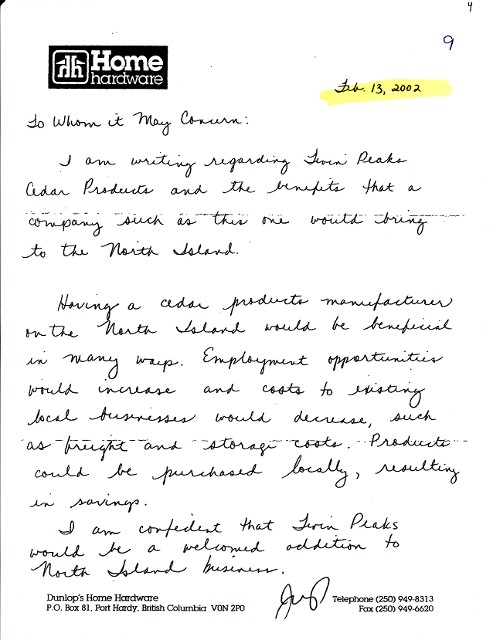 4
9
Home
hardware
Feb. 13, 2002
To Whom it May Concern:
I am writing regarding Twin Peaks
Cedar Products and the benefits that a
company such as this one would bring
to the North Island.
Having a cedar products manufacturer
on the North Island would be beneficial
in many ways. Employment opportunities
would increase and costs to existing
local businesses would decrease, such
as freight and storage costs. Products
could be purchased locally, resulting
in savings.
I am confident that Twin Peaks
would be a welcomed addition to
North Island business.
Dunlop's Home Hardware
P.O. Box 81, Port Hardy, British Columbia V0N 2P0
Telephone (250) 949-8313
Fax (250) 949-6620